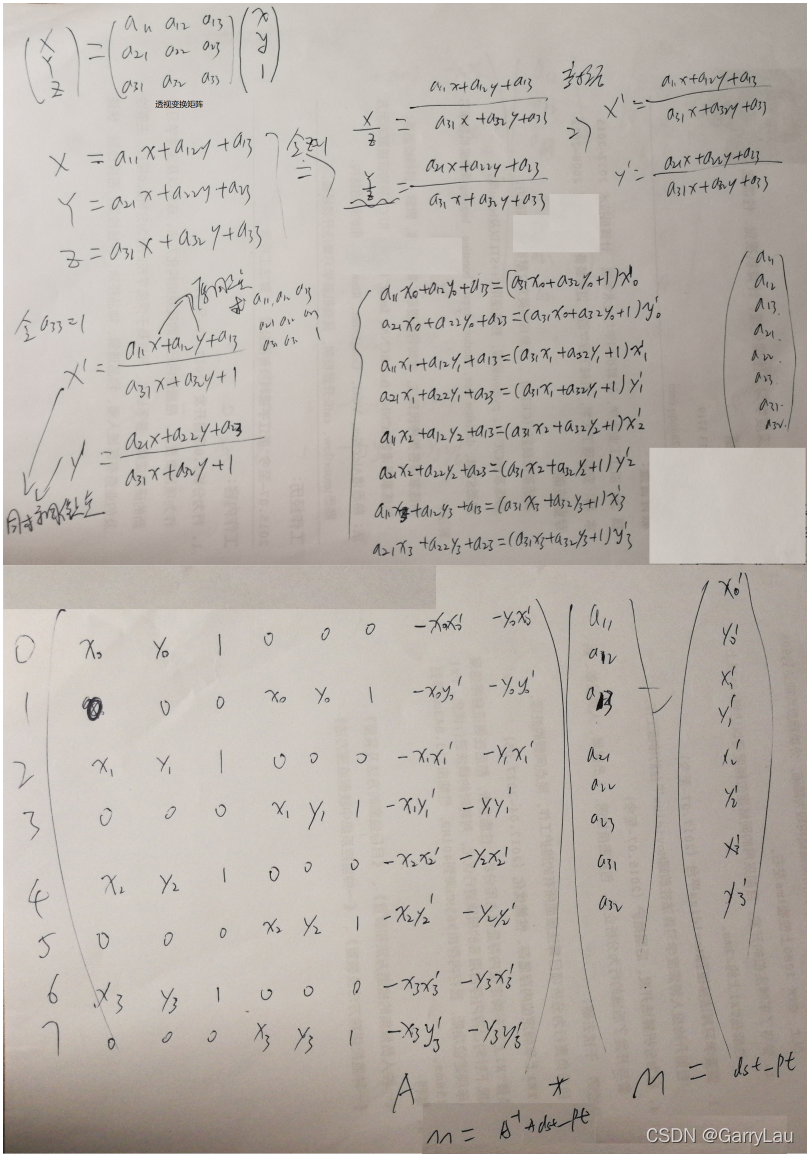 (X Y Z) = (a11 a12 a13
a21 a22 a23
a31 a32 a33) (x y 1)
透视变换矩阵
X = a11x+a12y+a13
Y = a21x+a22y+a23
Z = a31x+a32y+a33
令z=1
X/Z = (a11x+a12y+a13)/(a31x+a32y+a33)
Y/Z = (a21x+a22y+a23)/(a31x+a32y+a33)
X' = (a11x+a12y+a13)/(a31x+a32y+a33)
y' = (a21x+a22y+a23)/(a31x+a32y+a33)
令a33=1
a11, a12 a13
a21 a22 a23
a31 a32 1
X' = (a11x+a12y+a13)/(a31x+a32y+1)
y' = (a21x+a22y+a23)/(a31x+a32y+1)
a11x0+a12y0+a13=(a31x0+a32y0+1)x0'
a21x0+a22y0+a23=(a31x0+a32y0+1)y0'
a11x1+a12y1+a13=(a31x1+a32y1+1)x1'
a21x1+a22y1+a23=(a31x1+a32y1+1)y1'
a11x2+a12y2+a13=(a31x2+a32y2+1)x2'
a21x2+a22y2+a23=(a31x2+a32y2+1)y2'
a11x3+a12y3+a13=(a31x3+a32y3+1)x3'
a21x3+a22y3+a23=(a31x3+a32y3+1)y3'
a11
a12
a13
a21
a22
a23
a31
a32
0 x0 y0 1 0 0 0 -x0x0' -y0x0'
1 0 0 0 x0 y0 1 -x0y0' -y0y0'
2 x1 y1 1 0 0 0 -x1x1' -y1x1'
3 0 0 0 x1 y1 1 -x1y1' -y1y1'
4 x2 y2 1 0 0 0 -x2x2' -y2x2'
5 0 0 0 x2 y2 1 -x2y2' -y2y2'
6 x3 y3 1 0 0 0 -x3x3' -y3x3'
7 0 0 0 x3 y3 1 -x3y3' -y3y3'
a11
a12
a13
a21
a22
a23
a31
a32
=
x0'
y0'
x1'
y1'
x2'
y2'
x3'
y3'
A * M = dst_pt
m = A⁻¹ * dst_pt
CSDN @GarryLau